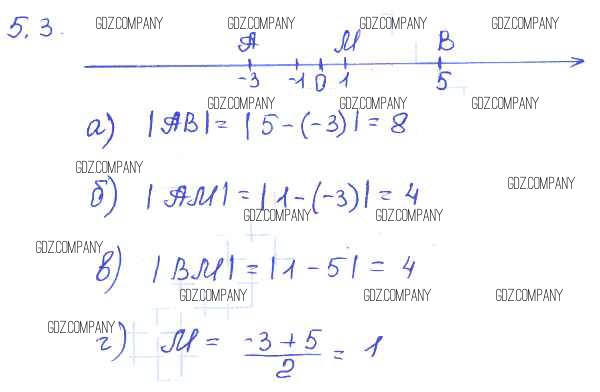 5.3.
GDZ.COMPANY GDZ.COMPANY GDZ.COMPANY GDZ.COMPANY
A M B
-3 -1 0 1 5
GDZ.COMPANY GDZ.COMPANY GDZ.COMPANY
а) |AB| = |5 - (-3)| = 8
GDZ.COMPANY GDZ.COMPANY
б) |AM| = |1 - (-3)| = 4
GDZ.COMPANY GDZ.COMPANY
GDZ.COMPANY
в) |BM| = |1 - 5| = 4
GDZ.COMPANY GDZ.COMPANY GDZ.COMPANY
GDZ.COMPANY
г) M = (-3 + 5)/2 = 1